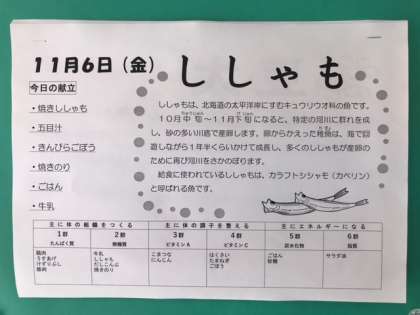 11月6日（金）
ししゃも
今日の献立
・焼きししゃも
・五目汁
・きんぴらごぼう
・焼きのり
・ごはん
・牛乳
ししゃもは、北海道の太平洋岸にすむキュウリウオ科の魚です。
10月中旬～11月下旬になると、特定の河川に群れを成
し、砂の多い川底で産卵します。卵からかえった稚魚は、海で回
遊しながら1年半くらいかけて成長し、多くのししゃもが産卵の
ために再び河川をさかのぼります。
給食に使われているししゃもは、カラフトシシャモ（カペリン）
と呼ばれる魚です。
主に体の組織をつくる
主に体の調子を整える
主にエネルギーになる
1群
2群
3群
4群
5群
6群
たんぱく質
無機質
ビタミンA
ビタミンC
炭水化物
脂質
鶏肉
うずあげ
けずりぶし
豚肉
牛乳
ししゃも
だしこんぶ
焼きのり
こまつな
にんじん
はくさい
たまねぎ
ごぼう
ごはん
砂糖
サラダ油